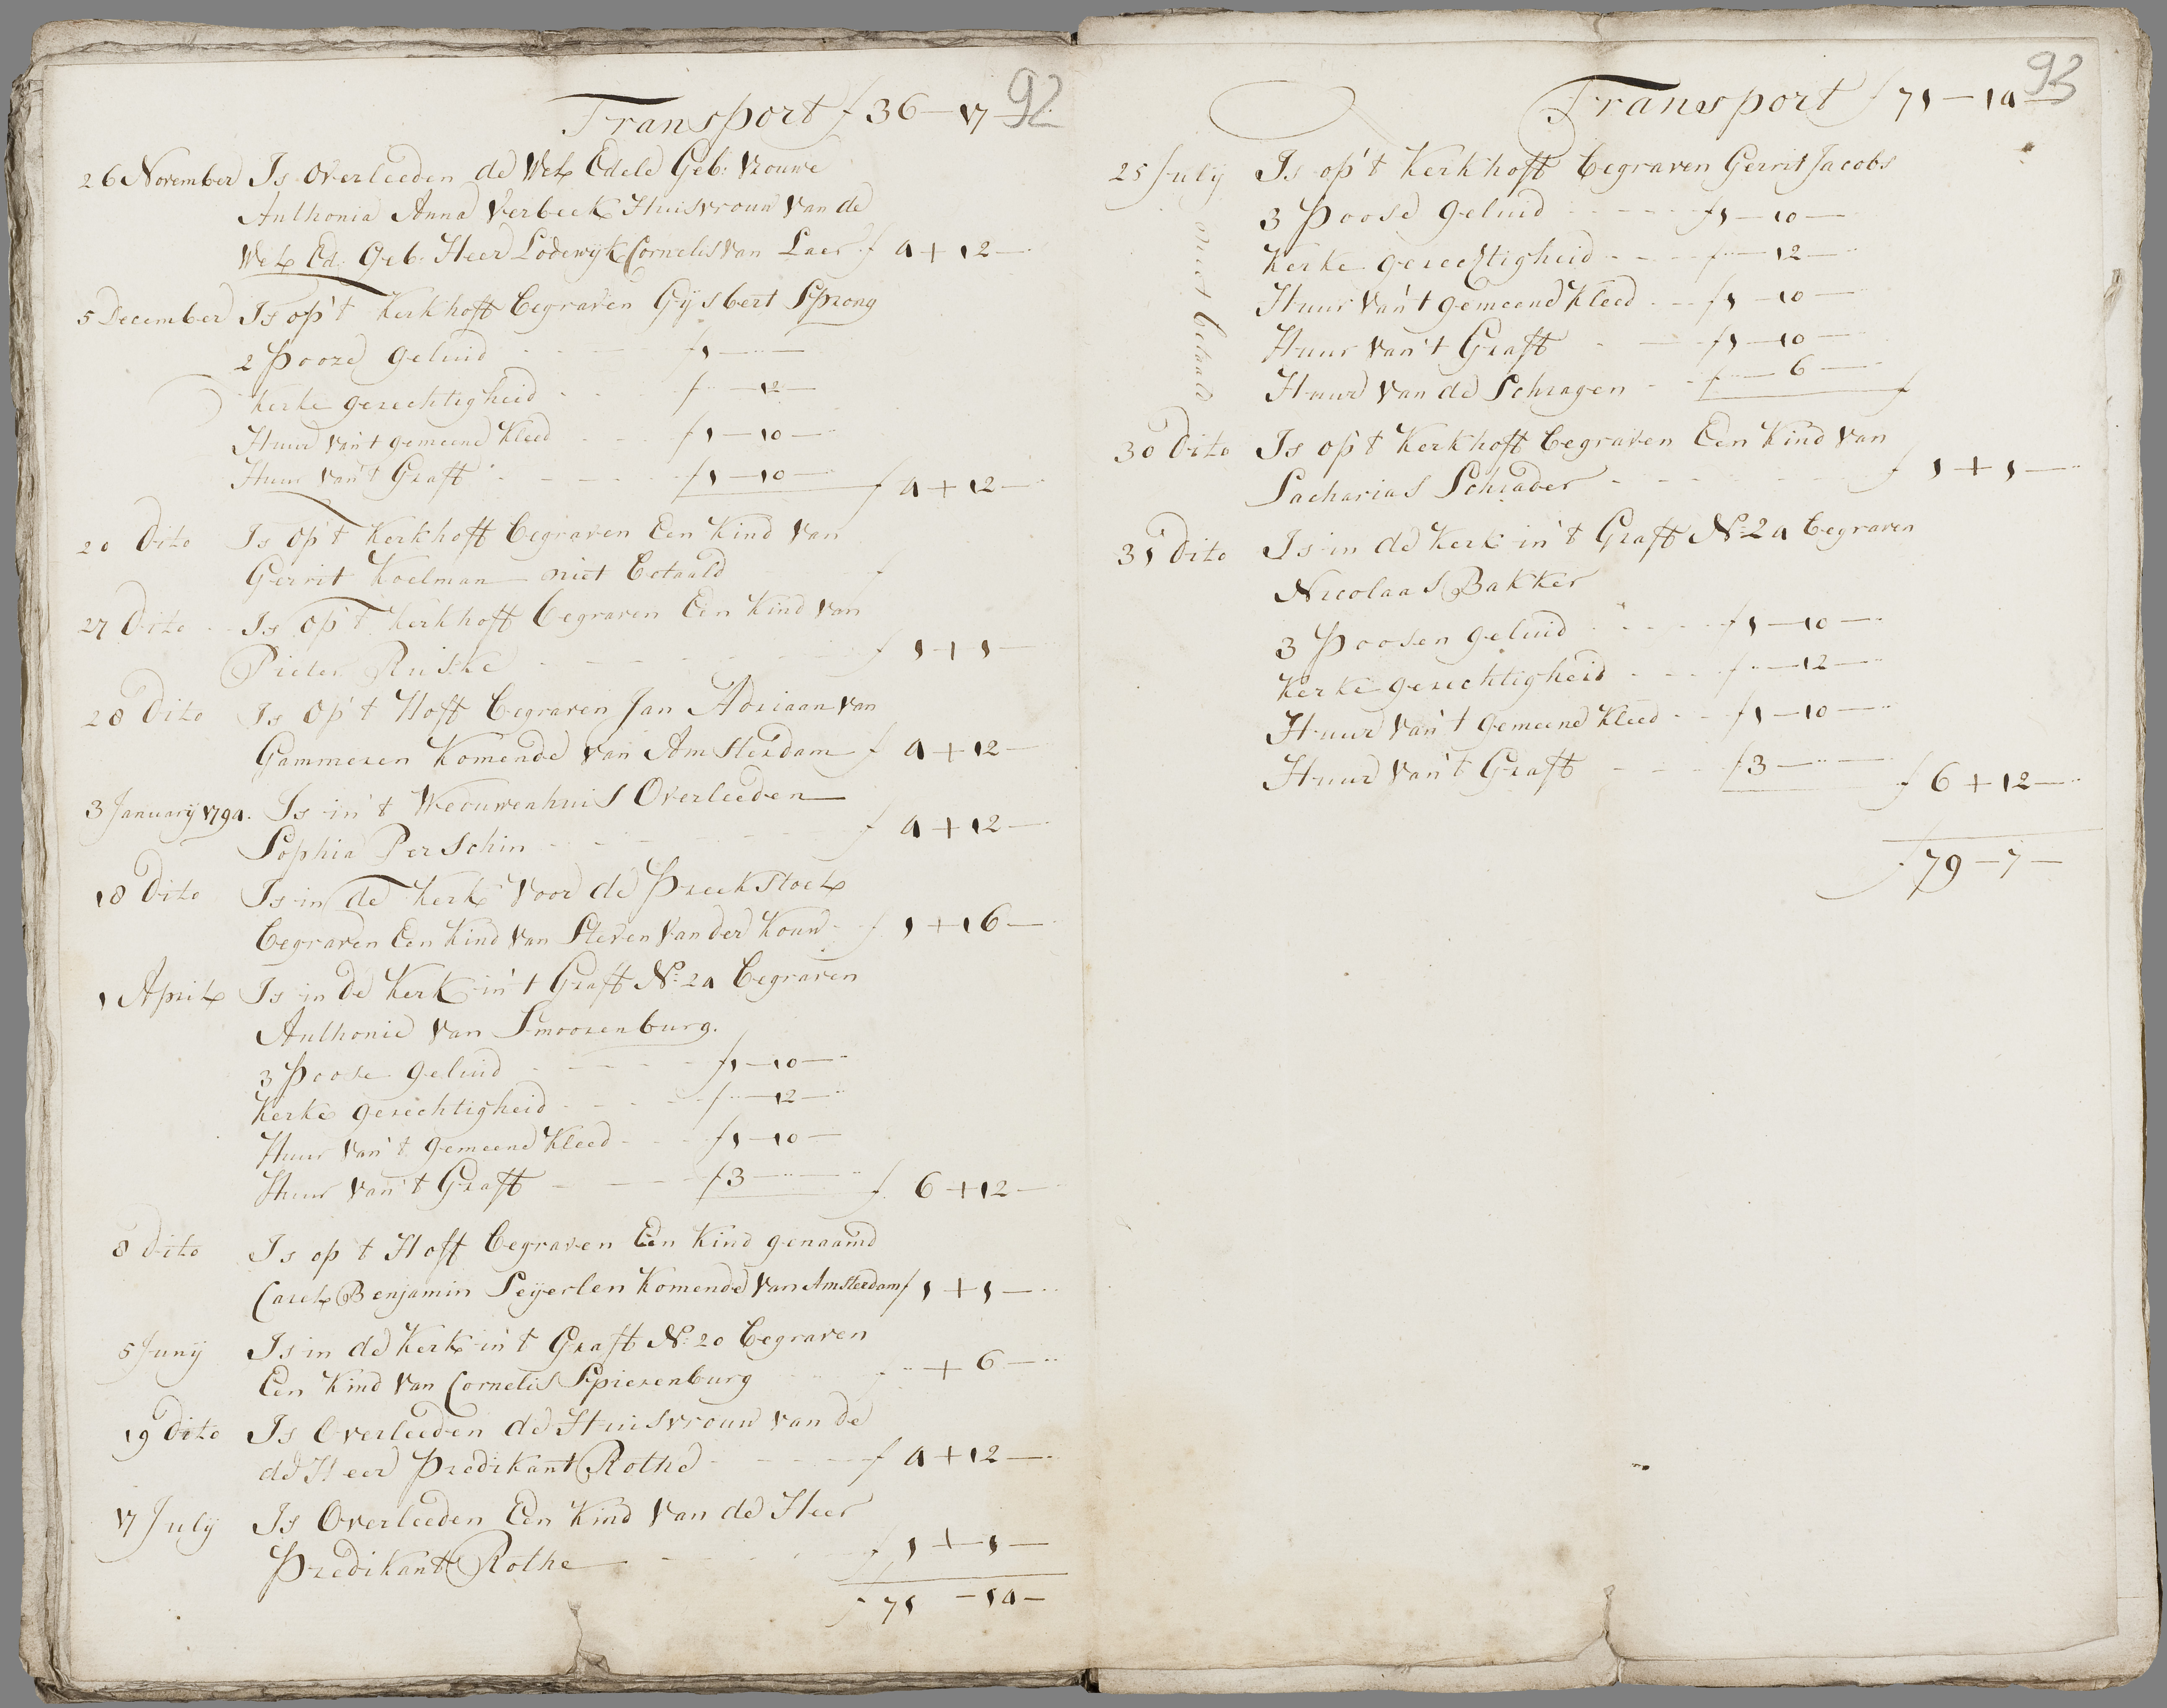 Transport f 36 — 17 —
92
26 November Is Overleeden de Wel Edele Geb: Vrouwe
Anthonia Anna Verbeek Huisvrouw van de
Wel Ed: Geb: Heer Lodewijk Cornelis van Laer f 4 + 12 —
5 December Is op't Kerkhoff begraven Gijsbert Sprong
2 Pooze geluid f 1 — „ —
Kerke gerechtigheid f „ — 12 —
Huur van't gemeene Kleed f 1 — 10 —
Huur van't Graft f 1 — 10 — f 4 + 12 —
20 Dito Is op't Kerkhoff begraven Een Kind van
Gerrit Koelman niet betaald f
27 Dito Is op't Kerkhoff begraven Een Kind van
Pieter Ruiske f 1 + 1 —
28 Dito Is op't Hoff begraven Jan Adriaan van
Gammeren Komende van Amsterdam f 4 + 12 —
3 January 1794. Is in't Weduwenhuis Overleeden
Sophia Perschin f 4 + 12 —
18 Dito Is in de Kerk voor de Preekstoel
begraven Een Kind van Steven van der Kouw f 1 + 16 —
1 April Is in de Kerk in't Graft No: 24 begraven
Anthonie van Smoorenburg.
3 Poose geluid f 1 — 10 —
Kerke gerechtigheid f „ — 12 —
Huur van't gemeene Kleed f 1 — 10 —
Huur van't Graft f 3 — „ — f 6 + 12 —
8 Dito Is op't Hoff begraven Een Kind genaamd
Carel Benjamin Seyerlen Komende van Amsterdam f 1 + 1 —
5 Juny Is in de Kerk in't Graft No: 20 begraven
Een Kind van Cornelis Spierenburg f „ + 6 —
19 Dito Is Overleeden de Huisvrouw van de
de Heer Predikant Rothe f 4 + 12 —
17 July Is Overleeden Een Kind van de Heer
Predikant Rothe f 1 + 1 —
f 71 — 14 —
Transport f 71 — 14 —
93
25 July Is op't Kerkhoff begraven Gerrit Jacobs
niet betaald
3 Poose geluid f 1 — 10 —
Kerke gerechtigheid f „ — 12 —
Huur van't gemeene Kleed f 1 — 10 —
Huur van't Graft f 1 — 10 —
Huur van de Schragen f „ — 6 — f
30 Dito Is op't Kerkhoff begraven Een Kind van
Sacharias Schrader f 1 + 1 —
31 Dito Is in de Kerk in't Graft No: 24 begraven
Nicolaas Bakker
3 Poosen geluid f 1 — 10 —
Kerke gerechtigheid f „ — 12 —
Huur van't gemeene Kleed f 1 — 10 —
Huur van't Graft f 3 — „ — f 6 + 12 —
f 79 — 7 —